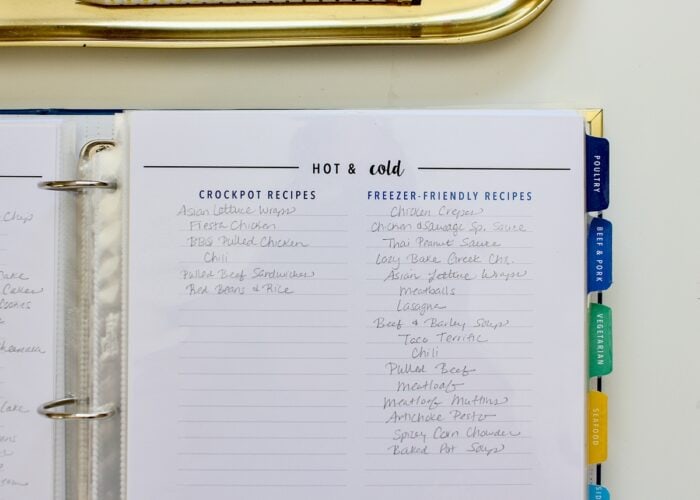 Chip
Cake
Cakes
Cookies
Cake
HOT & cold
CROCKPOT RECIPES
Asian Lettuce Wraps
Fiesta Chicken
BBQ Pulled Chicken
Chili
Pulled Beef Sandwiches
Red Beans & Rice
FREEZER-FRIENDLY RECIPES
Chicken Crepes
Chicken & Sausage Sp. Sauce
Thai Peanut Sauce
Lazy Bake Greek Chx.
Asian Lettuce Wraps
Meatballs
Lasagna
Beef & Barley Soup
Taco Terrific
Chili
Pulled Beef
Meatloaf
Meatloaf Muffins
Artichoke Pesto
Spicy Corn Chowder
Baked Pot Soup
POULTRY
BEEF & PORK
VEGETARIAN
SEAFOOD
SID